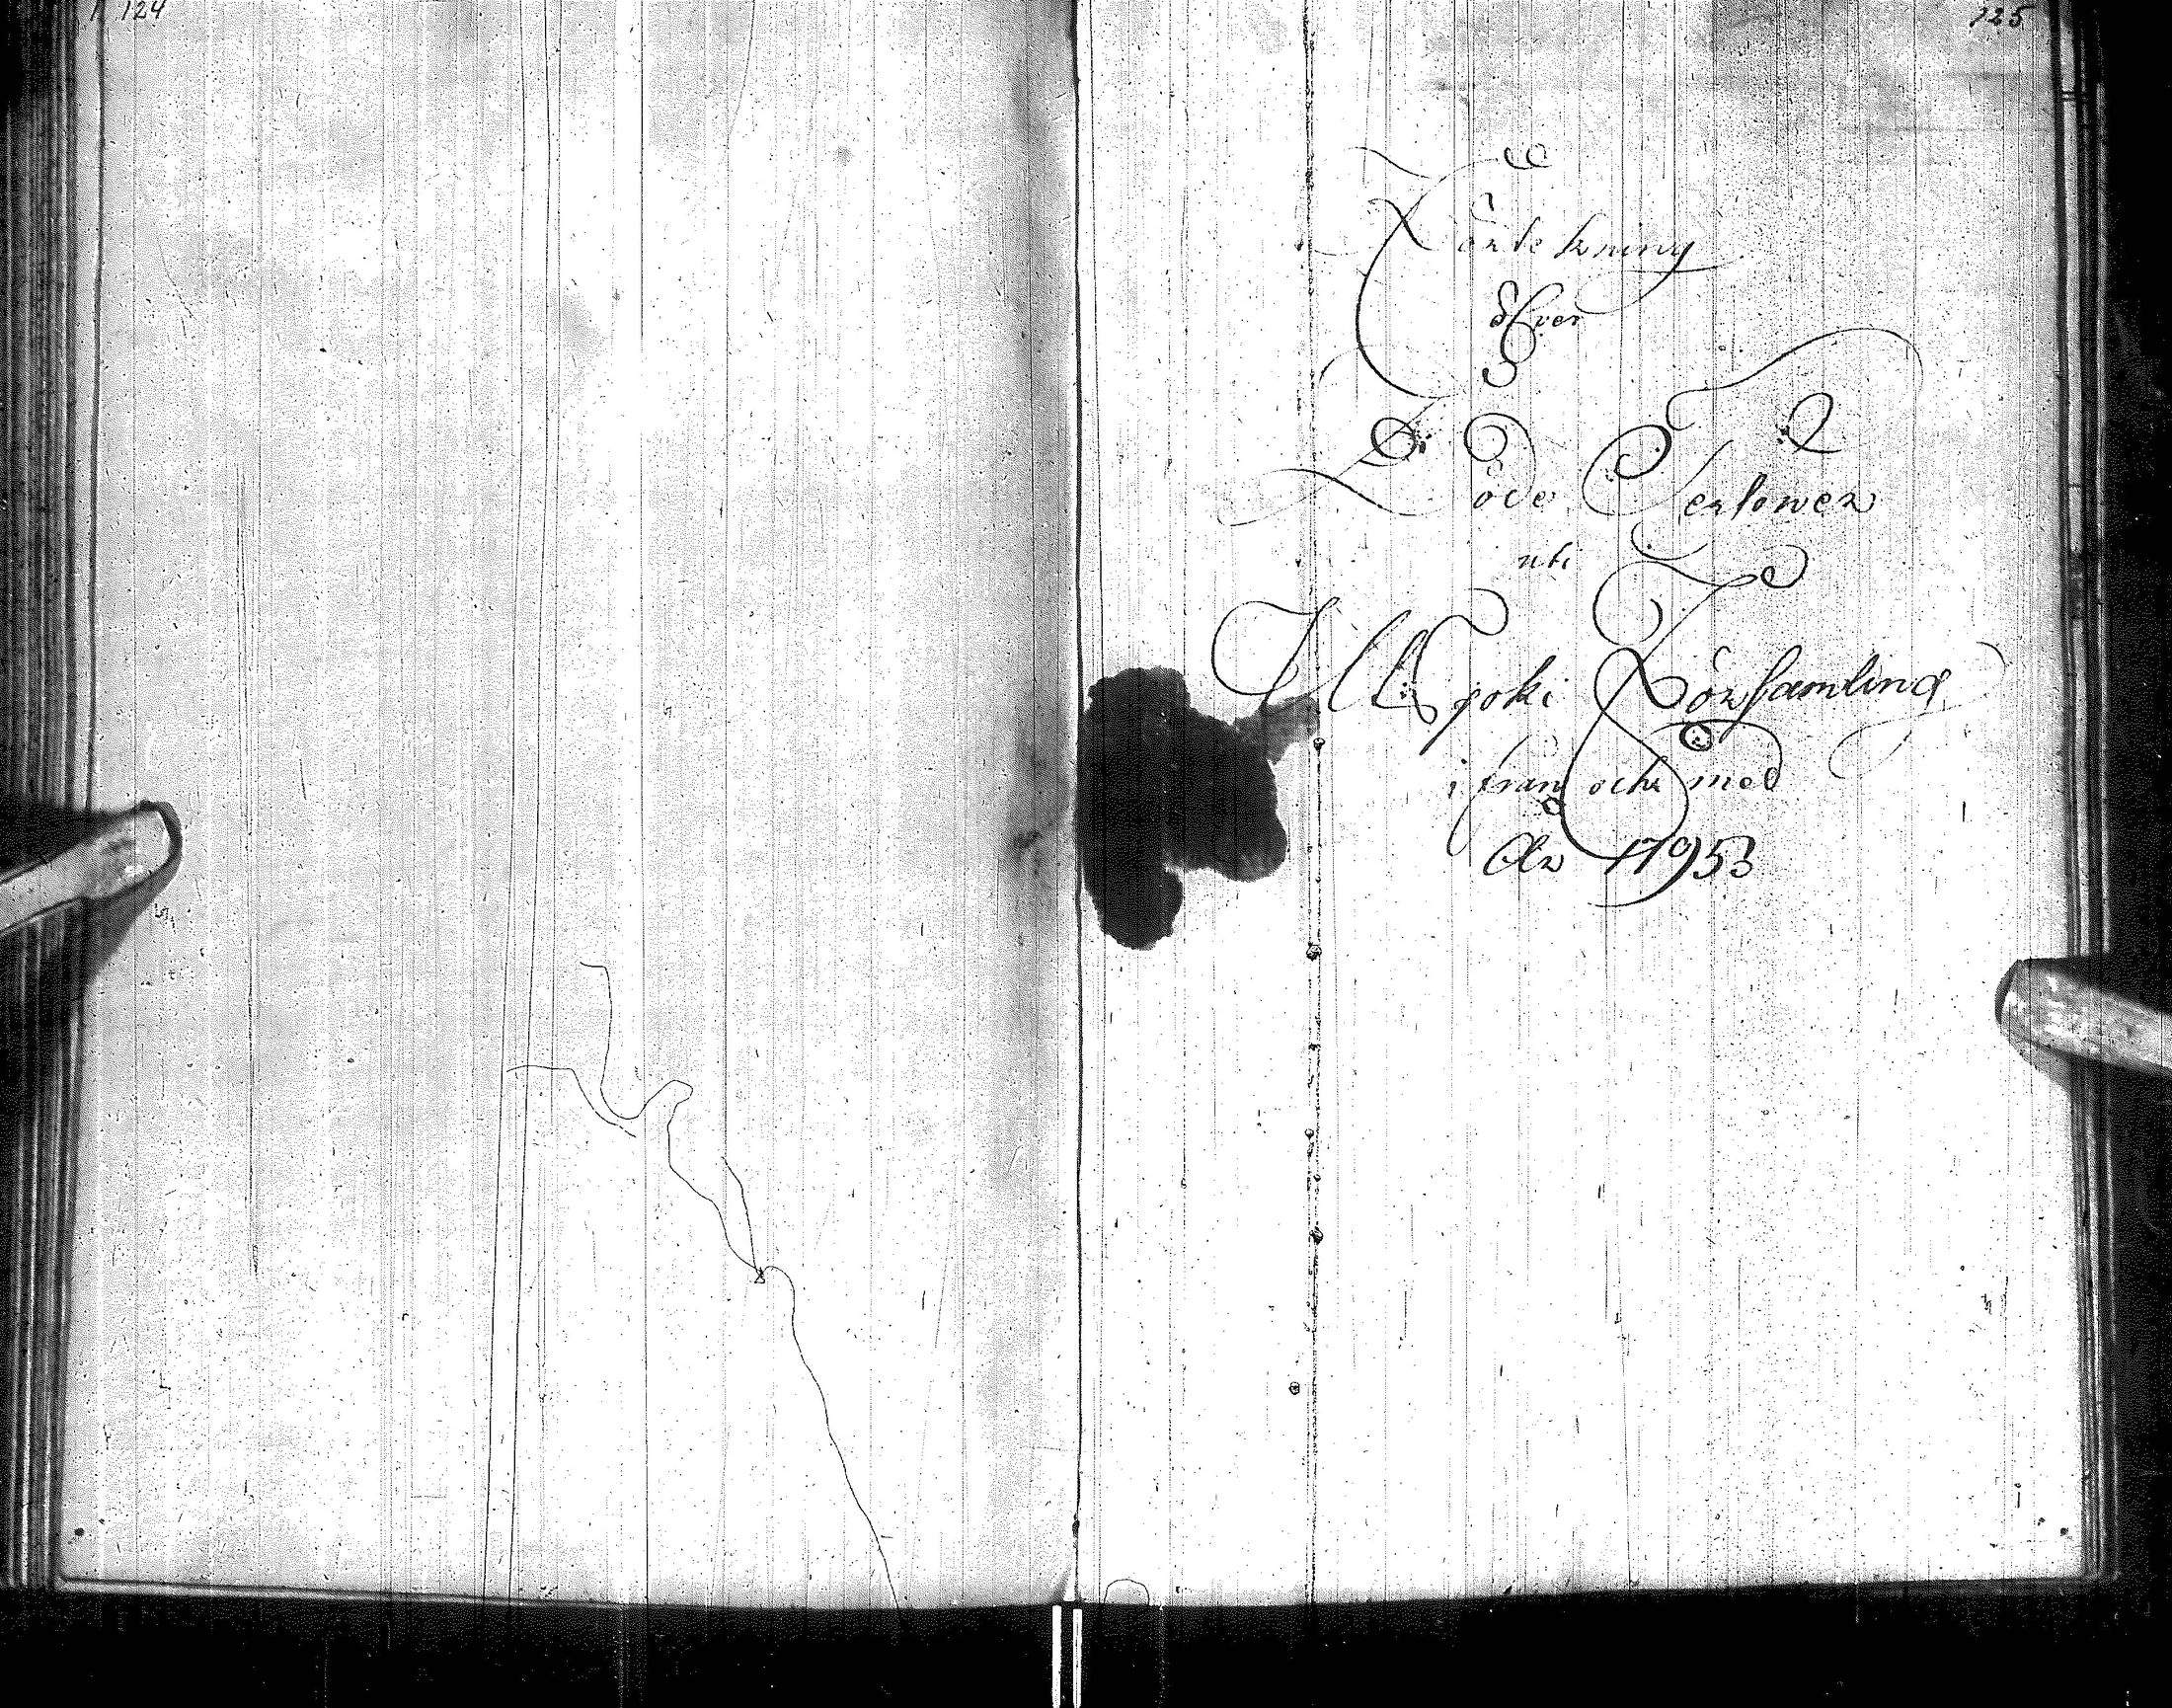 124
125
Förtekning
öfver
Döde Personer
uti
Ullspoki Församling
ifrån och med
År 1795